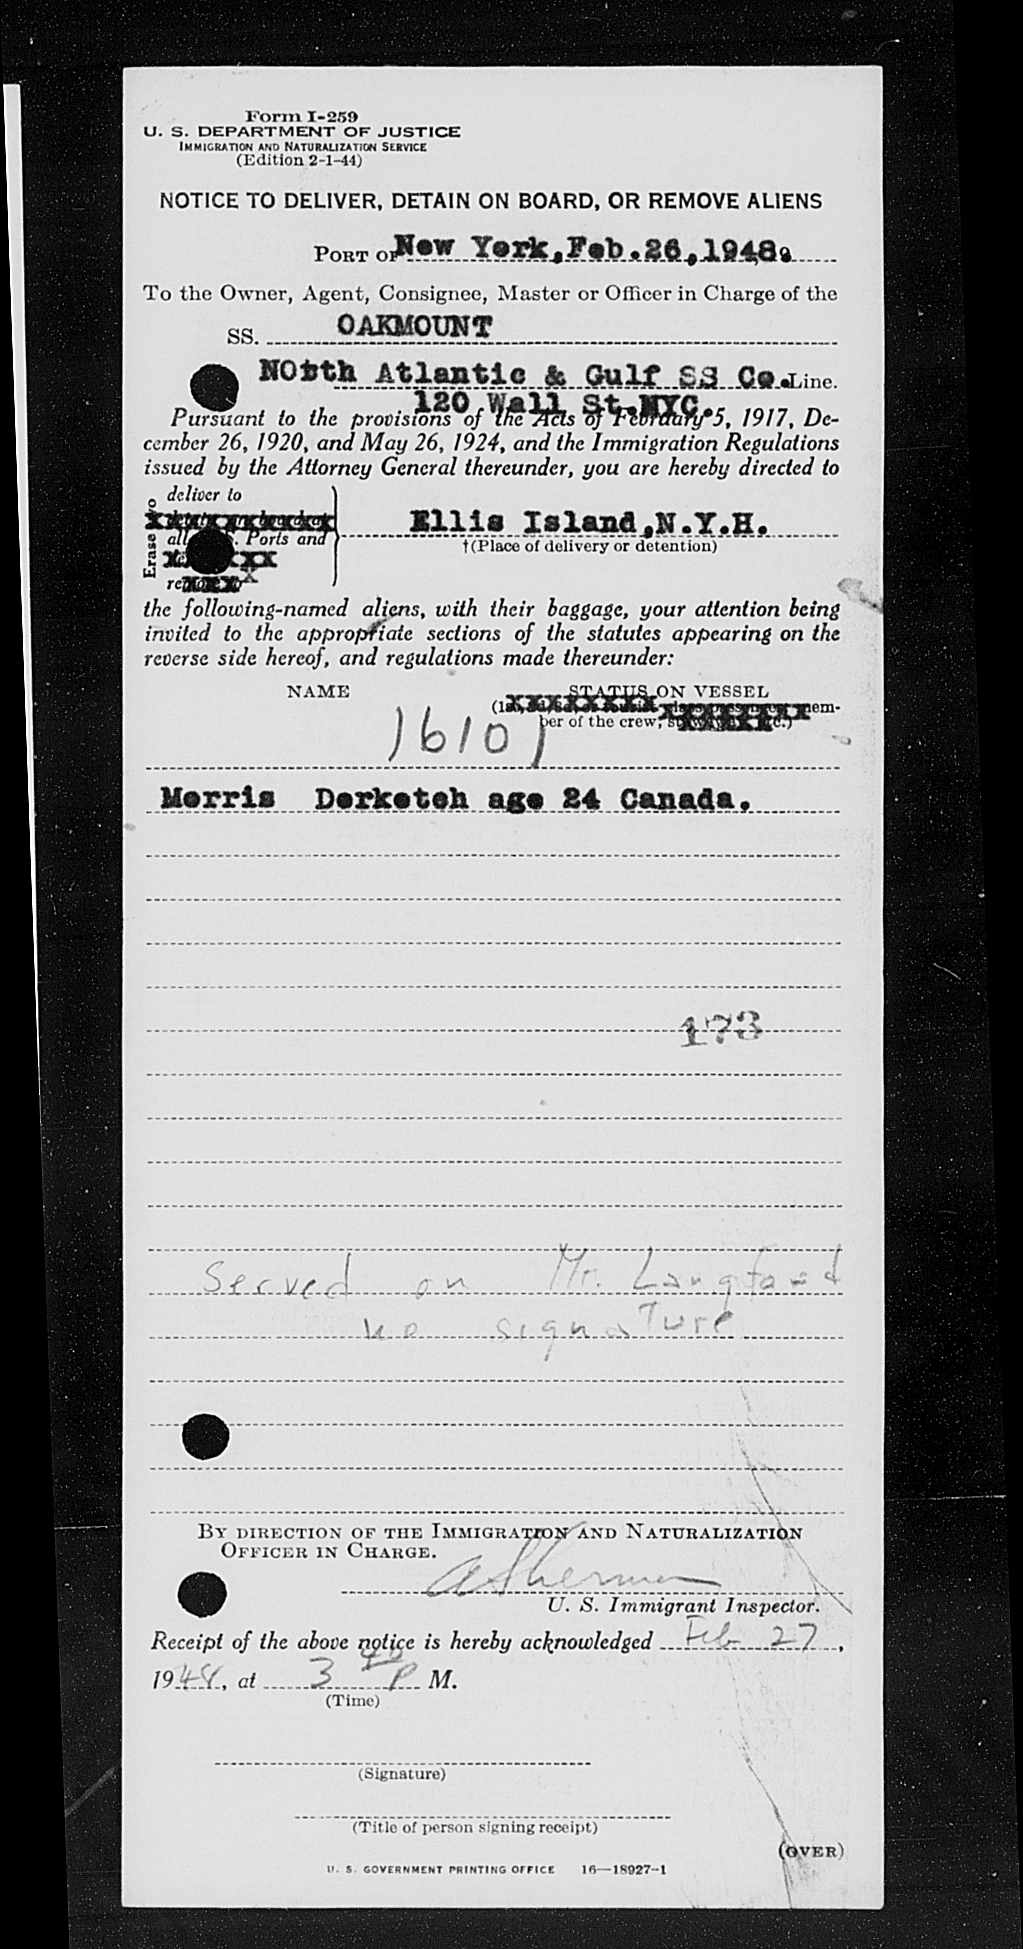 Form I-259
U. S. DEPARTMENT OF JUSTICE
IMMIGRATION AND NATURALIZATION SERVICE
(Edition 2-1-44)
NOTICE TO DELIVER, DETAIN ON BOARD, OR REMOVE ALIENS
PORT OF New York, Feb. 26, 1948
To the Owner, Agent, Consignee, Master or Officer in Charge of the
SS. OAKMOUNT
North Atlantic & Gulf SS Co. Line.
120 Wall St. NYC.
Pursuant to the provisions of the Acts of February 5, 1917, De-
cember 26, 1920, and May 26, 1924, and the Immigration Regulations
issued by the Attorney General thereunder, you are hereby directed to
deliver to
Ellis Island, N.Y.H.
Ports and
†(Place of delivery or detention)
Erase
the following-named aliens, with their baggage, your attention being
invited to the appropriate sections of the statutes appearing on the
reverse side hereof, and regulations made thereunder:
NAME STATUS ON VESSEL
mem-
ber of the crew,
16101
Morris Derketch age 24 Canada.
173
Served on Mr. Langford
no signature
BY DIRECTION OF THE IMMIGRATION AND NATURALIZATION
OFFICER IN CHARGE.
A Sherman
U. S. Immigrant Inspector.
Receipt of the above notice is hereby acknowledged Feb 27,
1948, at 3 40 P M.
(Time)
(Signature)
(Title of person signing receipt)
(OVER)
U. S. GOVERNMENT PRINTING OFFICE 16—18927-1